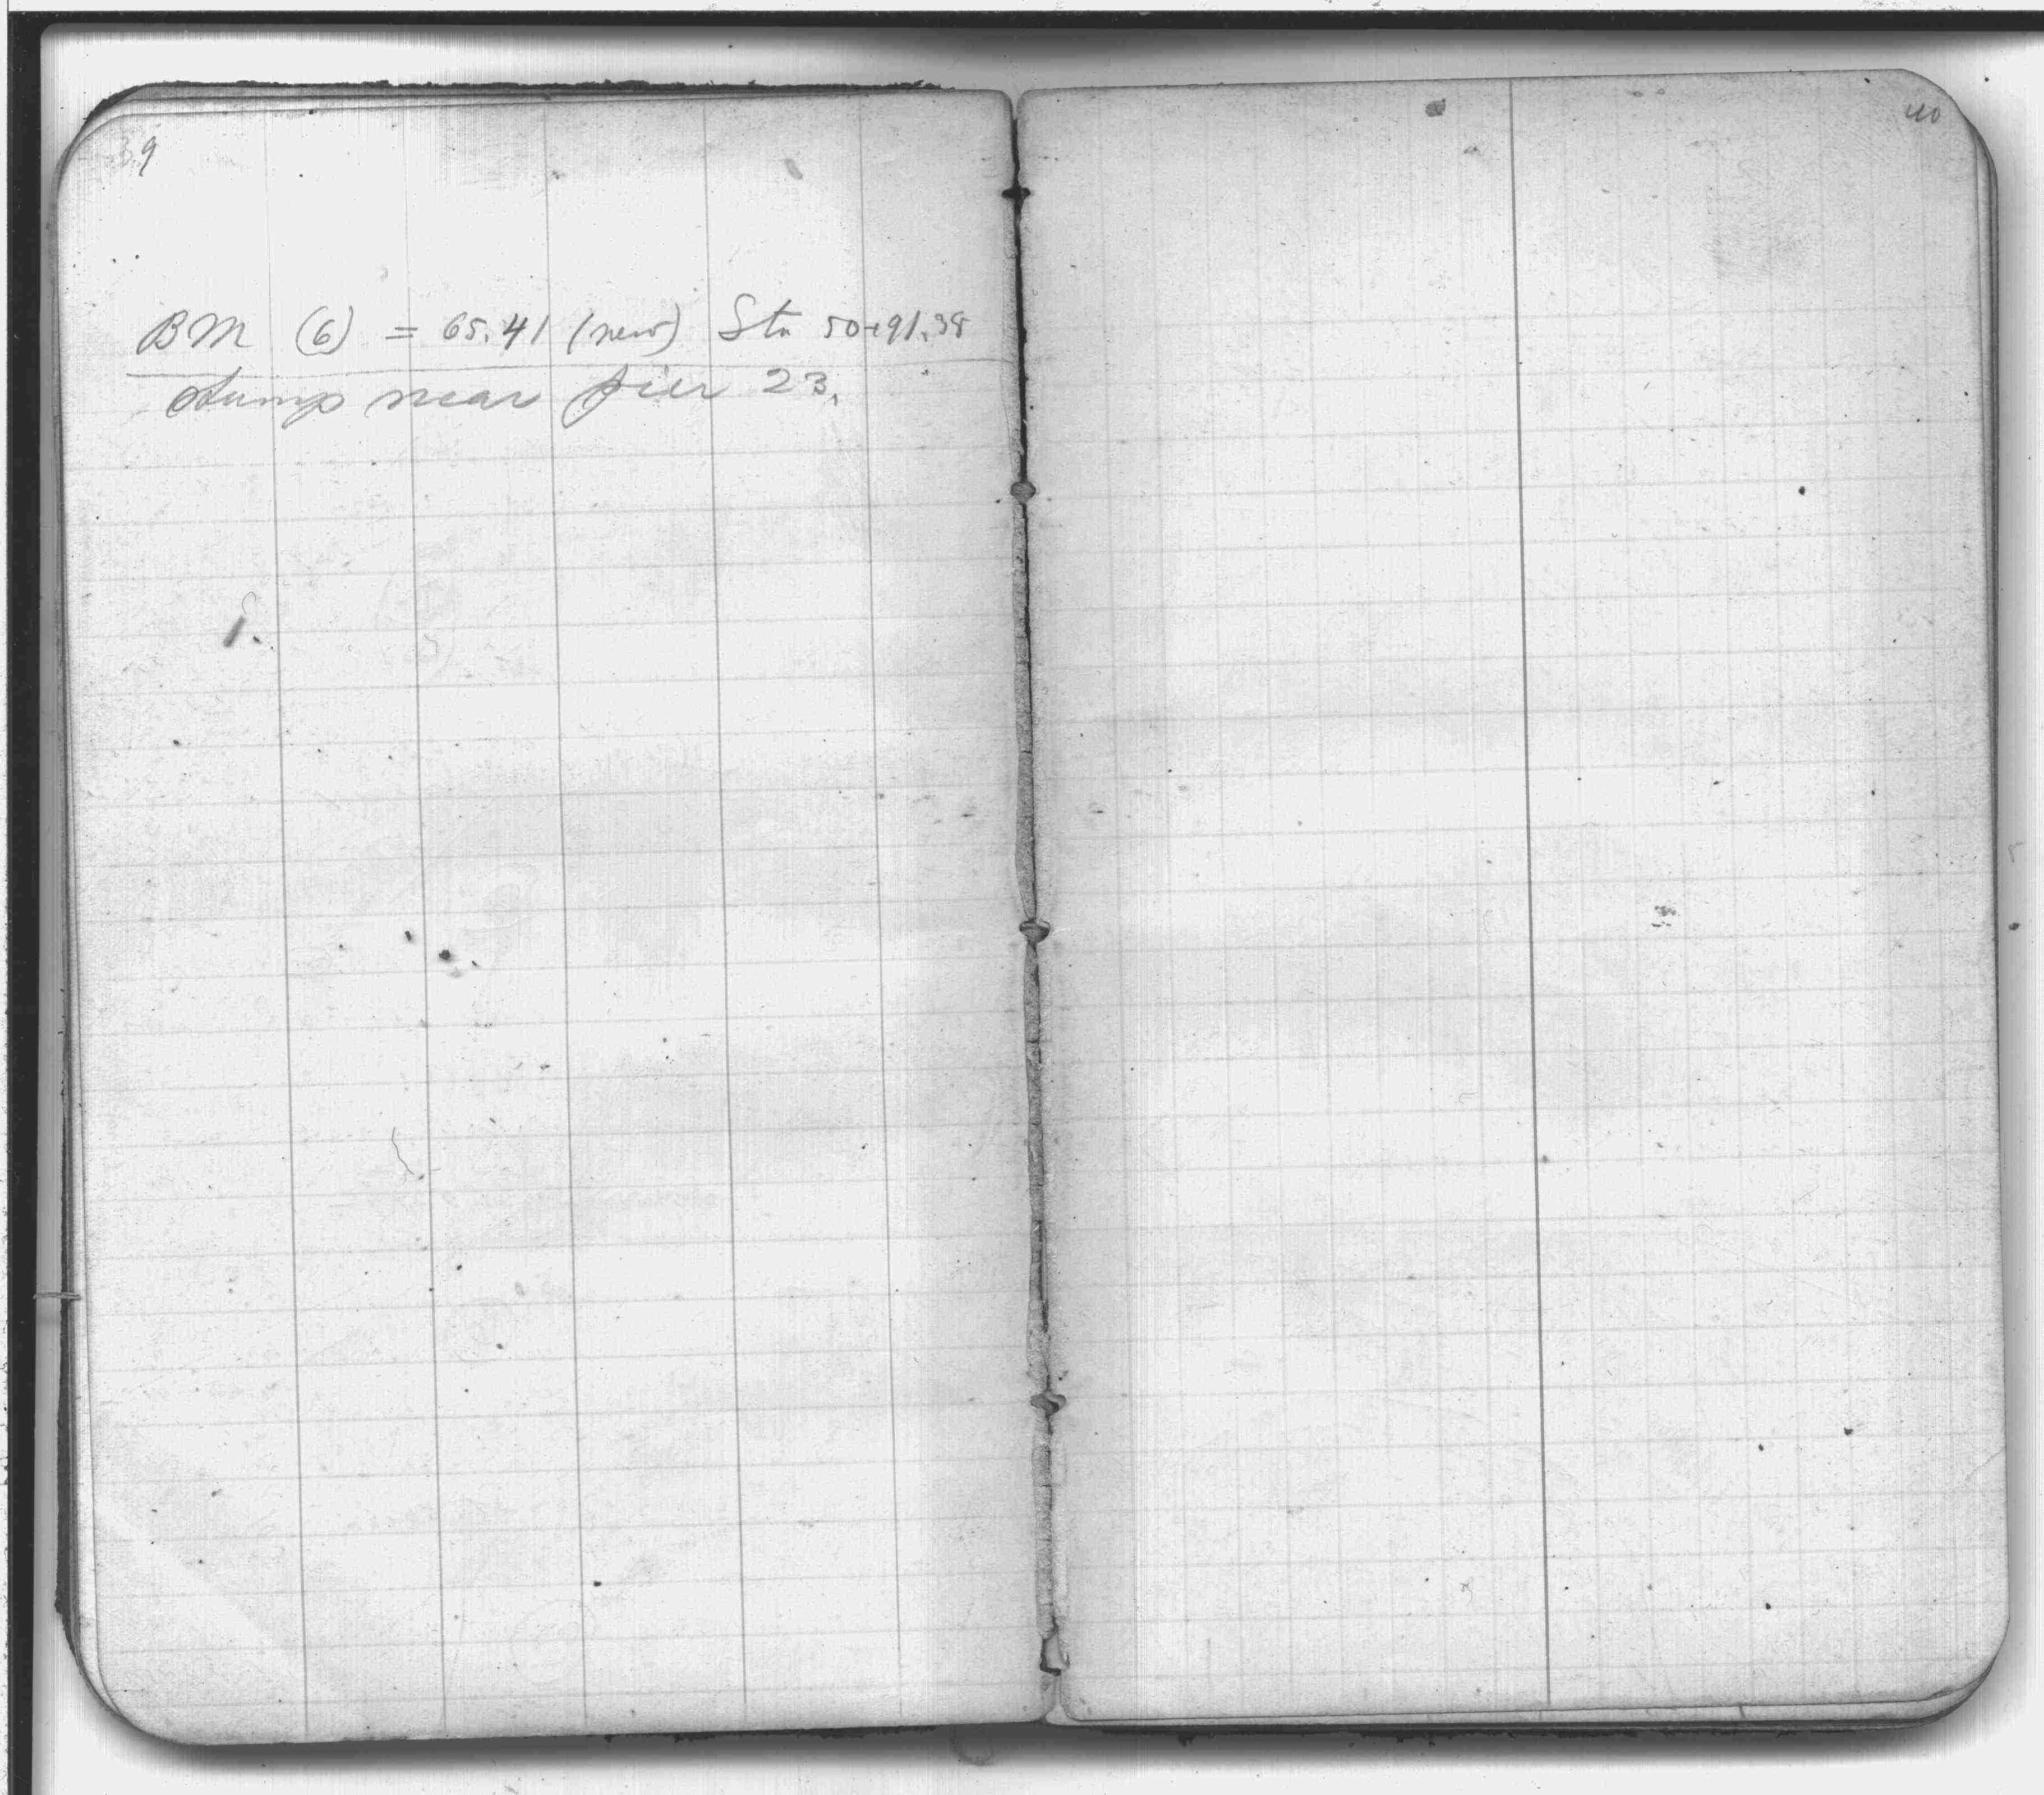 39
40
BM (6) = 65.41 (new) Sta 50+91.38
stump near pier 23.